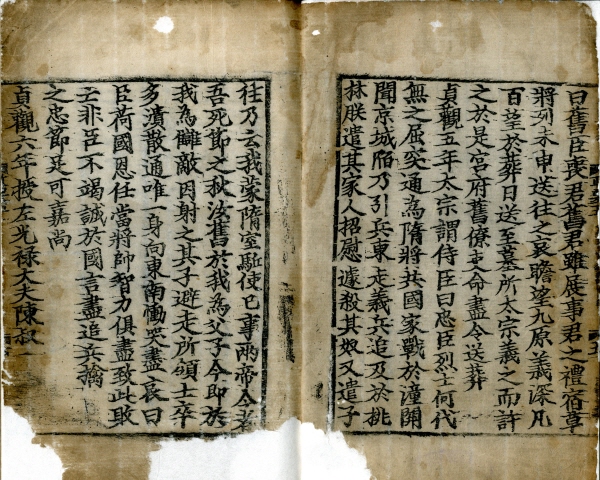 曰舊臣喪君舊君雖展事君之禮宿草
將列未申送往之哀瞻望九原義深凡
百望於葬日送至墓所太宗義之而許
之於是宮府舊僚吏命盡令送葬
貞觀五年太宗謂侍臣曰忠臣烈士何代
無之屈突通為隋將共國家戰於潼關
聞京城陷乃引兵東走義兵追及於桃
林朕遣其家人招慰遽殺其奴又遣子
往乃云我蒙隋室駈使已事兩帝今者
吾死節之秋汝舊於我為父子今即於
我為讎敵因射之其子避走所領士卒
多潰散通唯一身向東南慟哭盡哀曰
臣荷國恩任當將帥智力俱盡致此敗
亡非臣不竭誠於國言盡追兵擒
之忠節足可嘉尚
貞觀六年授左光祿大夫陳叔